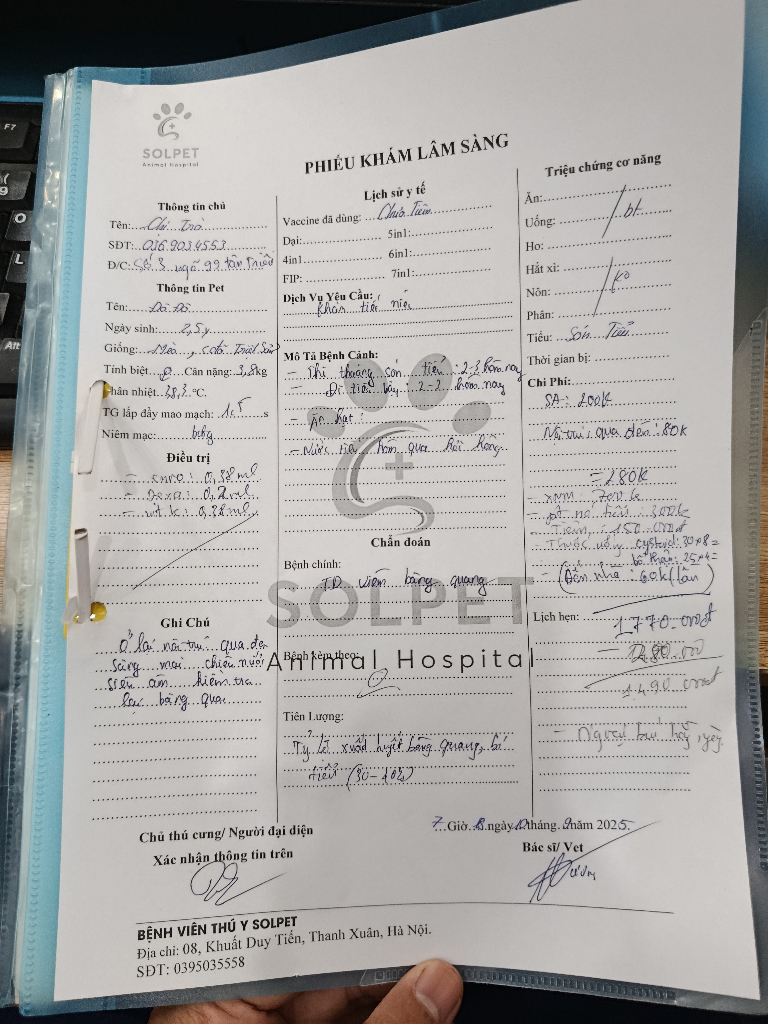 SOLPET
Animal Hospital
PHIẾU KHÁM LÂM SÀNG
Thông tin chủ
Tên: Chị Trà
SĐT: 0369034553
Đ/C: Số 3 ngõ 99 tân triều
Thông tin Pet
Tên:
Ngày sinh: 2,5y
Giống: Mèo,
Tính biệt: Cân nặng: 3,8kg
Thân nhiệt: 38,3 °C.
TG lấp đầy mao mạch: 1,5 s
Niêm mạc:
Điều trị
- enro: 0,38ml
- Dexa: 0,2ml
- vit k: 0,38ml
Ghi Chú
Ở lại nội trú qua đêm
sáng mai chiều
siêu âm kiểm tra
lại bàng quang
Lịch sử y tế
Vaccine đã dùng: Chưa Tiêm
Dại: 5in1:
4in1 6in1:
FIP: 7in1:
Dịch Vụ Yêu Cầu:
Khám tiết niệu
Mô Tả Bệnh Cảnh:
- Thi thoảng són tiểu: 2-3 hôm nay
- Đi tiểu 2-3 hôm nay
- Ăn hạt:
- Nước tiểu hôm qua hơi hồng
Chẩn đoán
Bệnh chính:
TD viêm bàng quang
Bệnh kèm theo:
Tiên Lượng:
Tỷ lệ xuất huyết bàng quang, bí
tiểu
Triệu chứng cơ năng
Ăn:
Uống: bt
Ho:
Hắt xì:
Nôn: ko
Phân:
Tiểu: Són Tiểu
Thời gian bị:
Chi Phí:
SA: 200K
Nội trú qua đêm: 80K
= 280K
- XNM: 700k
tiểu: 300k
Tiêm: 150.000đ
- Thuốc uống cystaid: 30*8=
bổ thận: 25*4=
- (Đến nhà: 60k/lần)
Lịch hẹn:
1.770.000đ
- 280.000
1.490.000đ
SOLPET
Animal Hospital
7 Giờ ngày tháng 9 năm 2025
Chủ thú cưng/ Người đại diện
Xác nhận thông tin trên
Bác sĩ/ Vet
BỆNH VIÊN THÚ Y SOLPET
Địa chỉ: 08, Khuất Duy Tiến, Thanh Xuân, Hà Nội.
SĐT: 0395035558